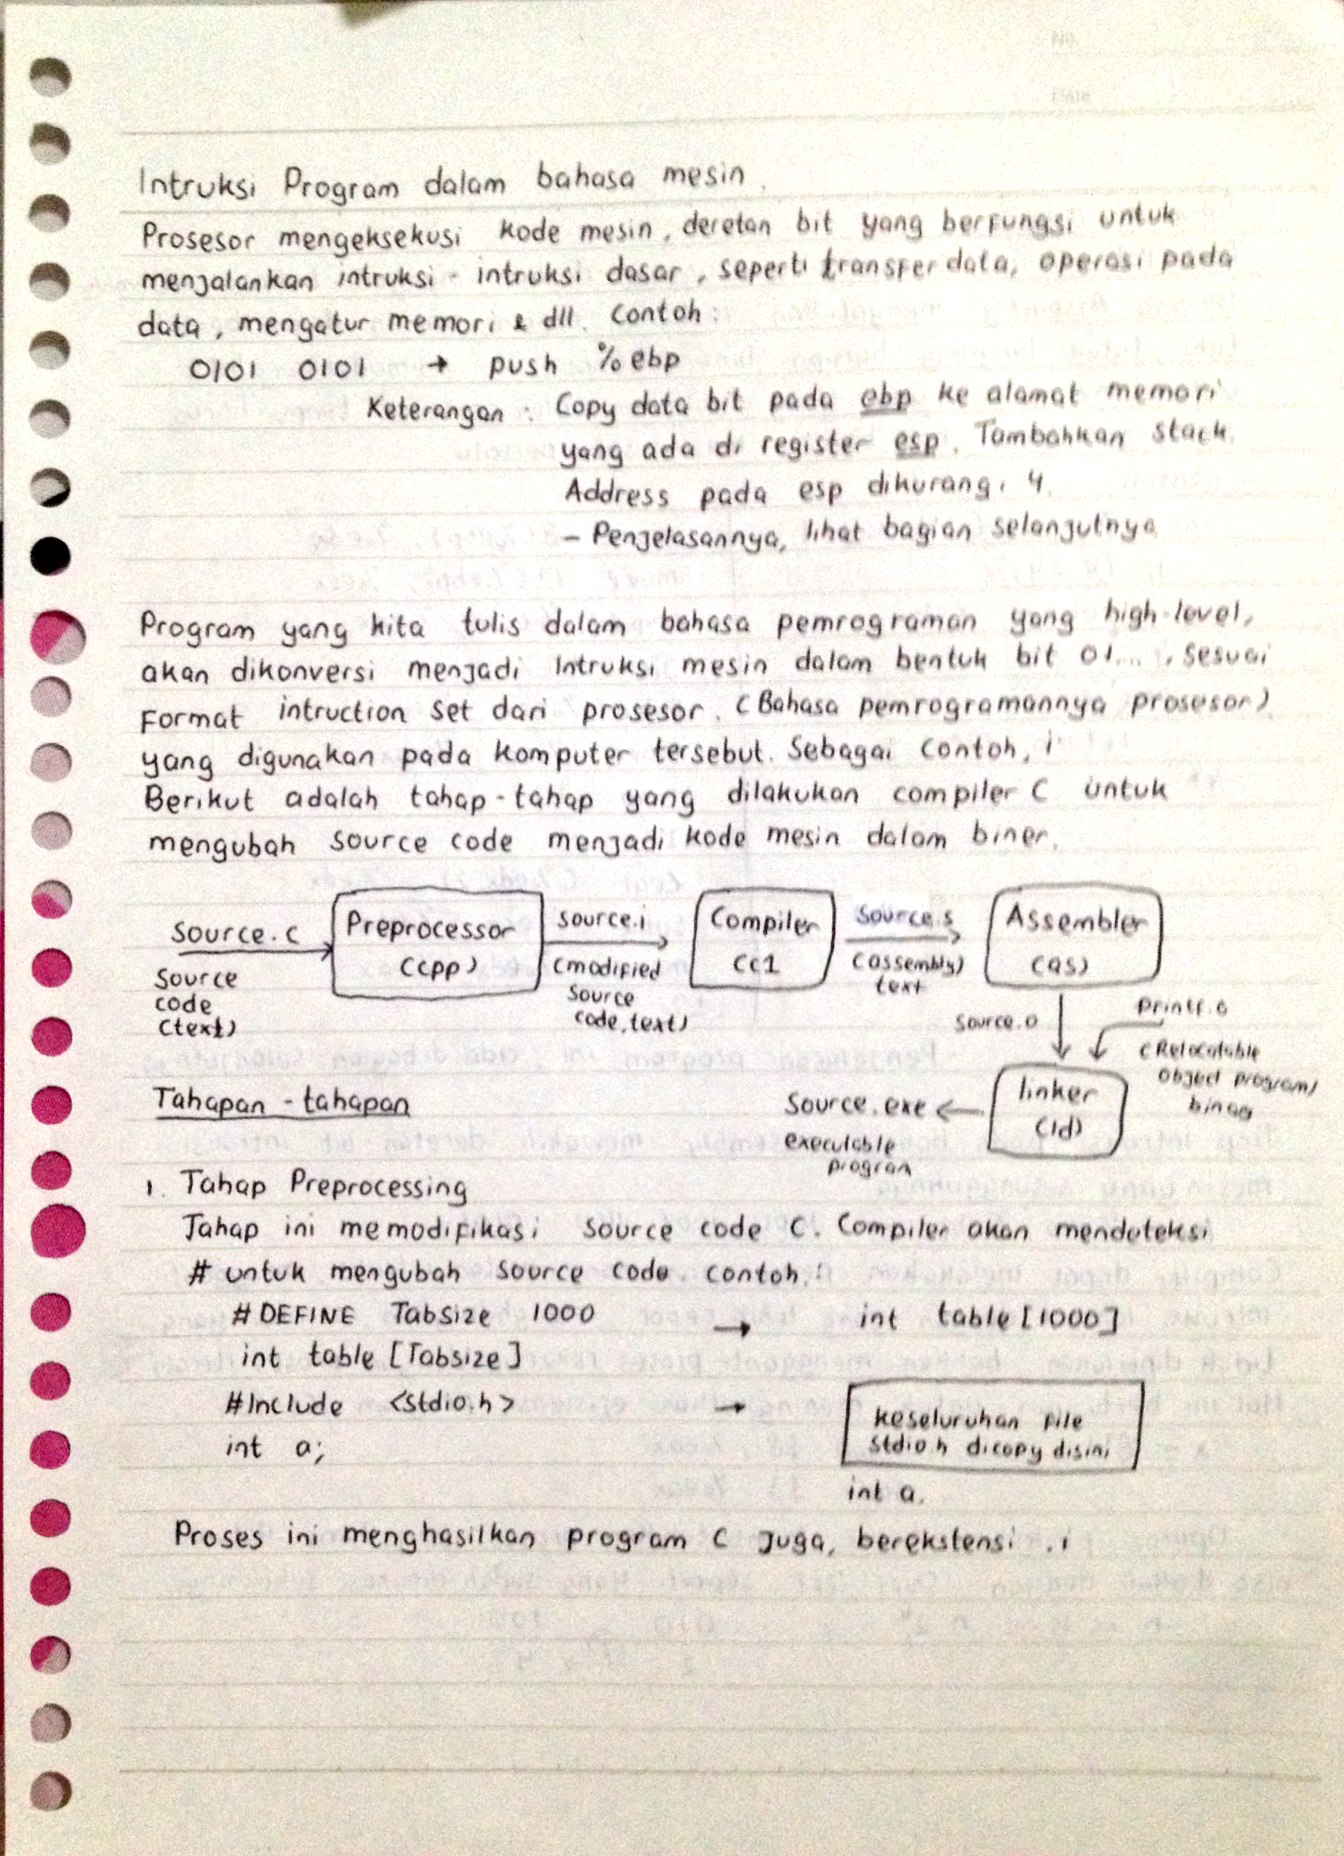 No.
Date
Intruksi Program dalam bahasa mesin.
Prosesor mengeksekusi kode mesin, deretan bit yang berfungsi untuk
menjalankan intruksi - intruksi dasar, seperti transfer data, operasi pada
data, mengatur memori & dll. Contoh:
0101 0101 → push %ebp
Keterangan : Copy data bit pada ebp ke alamat memori
yang ada di register esp. Tambahkan stack.
Address pada esp dikurangi 4.
- Penjelasannya, lihat bagian selanjutnya
Program yang kita tulis dalam bahasa pemrograman yang high-level,
akan dikonversi menjadi Intruksi mesin dalam bentuk bit 01...., sesuai
Format intruction set dari prosesor. (Bahasa pemrogramannya prosesor)
yang digunakan pada komputer tersebut. Sebagai contoh, i
Berikut adalah tahap-tahap yang dilakukan compiler C untuk
mengubah source code menjadi kode mesin dalam biner.
Source.c
Source
code
(text)
Preprocessor
(cpp)
source.i
(modified
source
code, text)
Compiler
(c1
source.s
(assembly)
text
Assembler
(as)
source.o
printf.o
(Relocatable
object program)
binary
linker
(ld)
Source.exe
executable
program
Tahapan - tahapan
1. Tahap Preprocessing
Tahap ini memodifikasi source code C. Compiler akan mendeteksi
# untuk mengubah source code. contoh:
#DEFINE Tabsize 1000 → int table [1000]
int table [Tabsize]
#Include <stdio.h> → keseluruhan file
stdio.h dicopy disini
int a; int a.
Proses ini menghasilkan program C juga, berekstensi .i